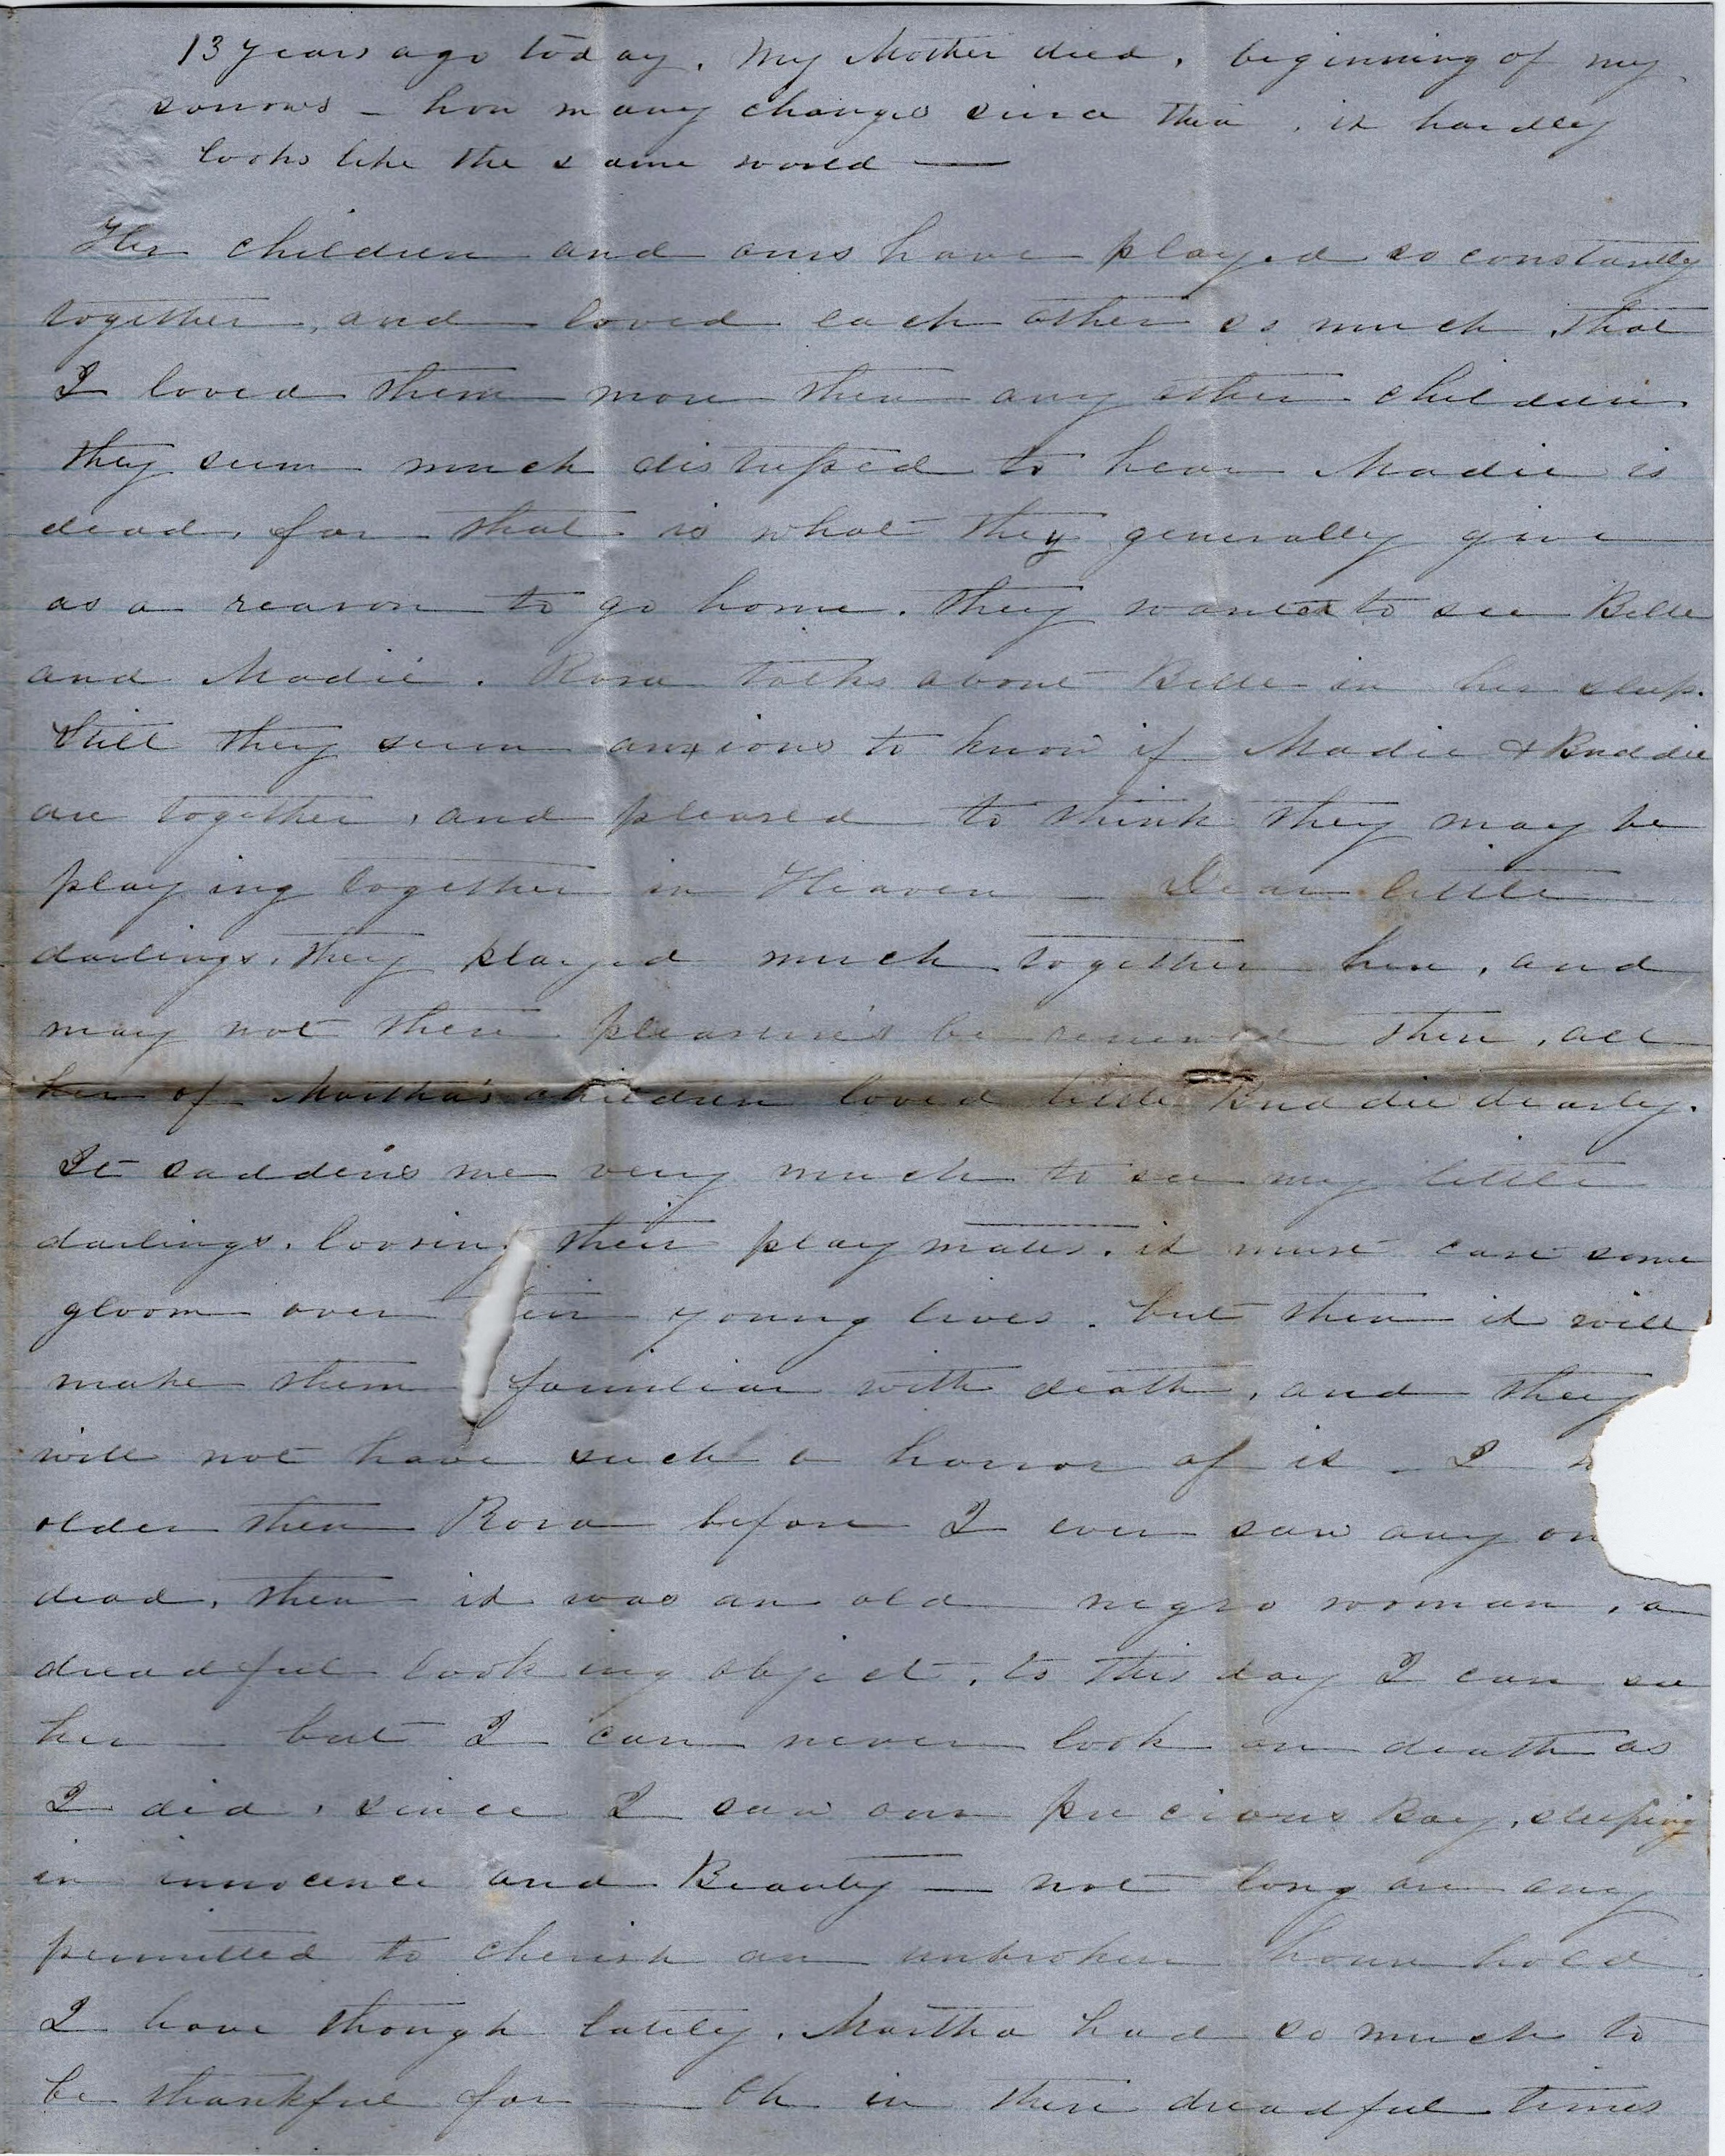 13 years ago today. My Mother died. beginning of my
sorrows – how many changes since then. it hardly
looks like the same world —
Her children and ours have played so constantly
together, and loved each other so much, that
I loved them more then any other children
they seem much distressed to hear Madie is
dead, for that is what they generally give
as a reason to go home. they wanted to see Belle
and Madie. Rosa talks about Belle in her sleep.
Still they seem anxious to know if Madie & Buddie
are together, and pleased to think they may be
playing together in Heaven – Dear little
darlings, they played much together here, and
may not there pleasures be renewed there, all
of Martha's children loved little Buddie dearly.
It saddens me very much to see my little
darlings. loosing their play mates. it must cast some
gloom over their young lives. but then it will
make them familiar with death, and they
will not have such a horror of it – I
older then Rosa before I ever saw any on
dead, then it was an old negro woman, a
dreadful looking object, to this day I can see
her – but I can never look on death as
I did, since I saw our precious Boy, sleeping
in innocence and Beauty — not long are any
permitted to cherish an unbroken house hold
I have though lately. Martha had so much to
be thankful for – Oh in these dreadful times